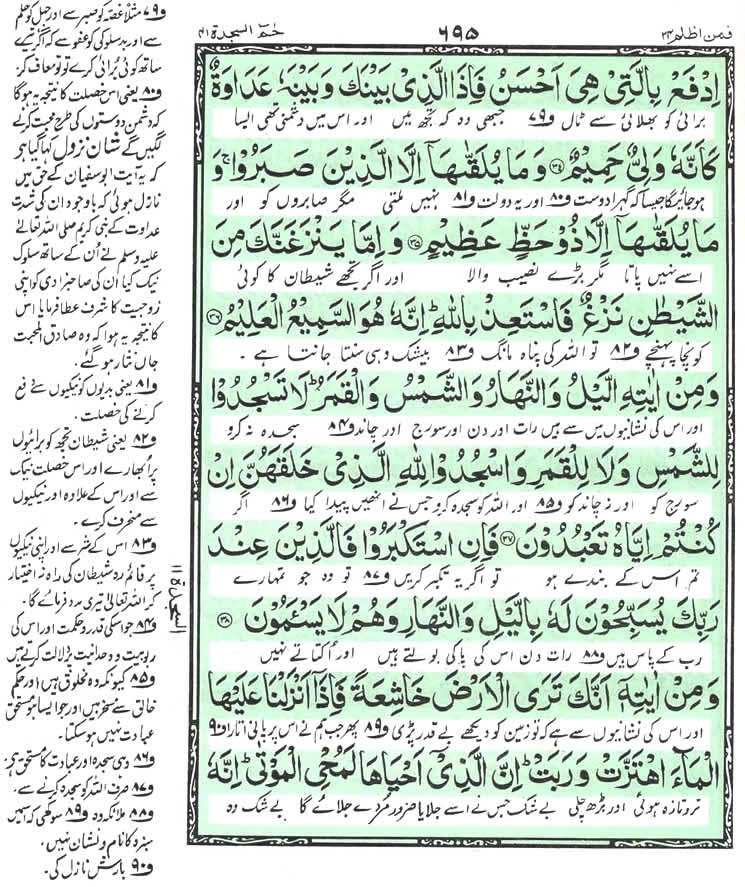 فمن اظلم ۲۴
۶۹۵
حٰمٓ السجدة ۴۱
اِدْفَعْ بِالَّتِیْ هِیَ اَحْسَنُ فَاِذَا الَّذِیْ بَیْنَكَ وَبَیْنَهٗ عَدَاوَةٌ
برائی کو بھلائی سے ٹال و۷۹ جبھی وہ کہ تجھ میں اور اس میں دشمنی تھی ایسا
كَاَنَّهٗ وَلِیٌّ حَمِیْمٌ ﴿۳۴﴾ وَمَا یُلَقّٰىهَاۤ اِلَّا الَّذِیْنَ صَبَرُوْا ۚ وَ
ہوجائیگا جیسا کہ گہرا دوست و۸۰ اور یہ دولت و۸۱ نہیں ملتی مگر صابروں کو اور
مَا یُلَقّٰىهَاۤ اِلَّا ذُوْ حَظٍّ عَظِیْمٍ ﴿۳۵﴾ وَاِمَّا یَنْزَغَنَّكَ مِنَ
اسے نہیں پاتا مگر بڑے نصیب والا اور اگر تجھے شیطان کا کوئی
الشَّیْطٰنِ نَزْغٌ فَاسْتَعِذْ بِاللّٰهِ ؕ اِنَّهٗ هُوَ السَّمِیْعُ الْعَلِیْمُ ﴿۳۶﴾
کونچا پہنچے و۸۲ تو اللہ کی پناہ مانگ و۸۳ بیشک وہی سنتا جانتا ہے ۔
وَمِنْ اٰیٰتِهِ الَّیْلُ وَالنَّهَارُ وَالشَّمْسُ وَالْقَمَرُ ؕ لَا تَسْجُدُوْا
اور اس کی نشانیوں میں سے ہیں رات اور دن اور سورج اور چاند و۸۴ سجدہ نہ کرو
لِلشَّمْسِ وَلَا لِلْقَمَرِ وَاسْجُدُوْا لِلّٰهِ الَّذِیْ خَلَقَهُنَّ اِنْ
سورج کو اور نہ چاند کو و۸۵ اور اللہ کو سجدہ کرو جس نے انھیں پیدا کیا و۸۶ اگر
كُنْتُمْ اِیَّاهُ تَعْبُدُوْنَ ﴿۳۷﴾ فَاِنِ اسْتَكْبَرُوْا فَالَّذِیْنَ عِنْدَ
تم اس کے بندے ہو تو اگر یہ تکبر کریں و۸۷ تو وہ جو تمہارے
رَبِّكَ یُسَبِّحُوْنَ لَهٗ بِالَّیْلِ وَالنَّهَارِ وَهُمْ لَا یَسْـَٔمُوْنَ ﴿۳۸﴾
رب کے پاس ہیں و۸۸ رات دن اس کی پاکی بولتے ہیں اور اکتاتے نہیں
وَمِنْ اٰیٰتِهٖۤ اَنَّكَ تَرَی الْاَرْضَ خَاشِعَةً فَاِذَاۤ اَنْزَلْنَا عَلَیْهَا
اور اس کی نشانیوں سے ہے کہ تو زمین کو دیکھے بے قدر پڑی و۸۹ پھر جب ہم نے اس پر پانی اتارا و۹۰
الْمَآءَ اهْتَزَّتْ وَرَبَتْ ؕ اِنَّ الَّذِیْۤ اَحْیَاهَا لَمُحْیِ الْمَوْتٰی ؕ اِنَّهٗ
تروتازہ ہوئی اور بڑھ چلی بے شک جس نے اسے جلایا ضرور مردے جلائے گا بے شک وہ
السجدة ۱۱
و۷۹ مثلاً غصہ کو صبر سے اور جہل کو حلم
سے اور بدسلوکی کو عفو سے کہ اگر تیرے
ساتھ کوئی برائی کرے تو تو معاف کر۔
و۸۰ یعنی اس خصلت کا نتیجہ یہ ہوگا
کہ دشمن دوستوں کی طرح محبت کرنے
لگیں گے شان نزول کہا گیا ہے
کہ یہ آیت ابوسفیان کے حق میں
نازل ہوئی کہ باوجود ان کی شدت
عداوت کے نبی کریم صلی اللہ تعالیٰ
علیہ وسلم نے ان کے ساتھ سلوک
نیک کیا ان کی صاحبزادی کو اپنی
زوجیت کا شرف عطا فرمایا اس
کا نتیجہ یہ ہوا کہ وہ صادق المحبت
جاں نثار ہوگئے۔
و۸۱ یعنی بدیوں کو نیکیوں سے دفع
کرنے کی خصلت۔
و۸۲ یعنی شیطان تجھ کو برائیوں
پر ابھارے اور اس خصلت نیک
سے اور اس کے علاوہ اور نیکیوں
سے منحرف کرے۔
و۸۳ اس کے شر سے اور اپنی نیکیوں
پر قائم رہ شیطان کی راہ نہ اختیار
کر اللہ تعالیٰ تیری مدد فرمائے گا۔
و۸۴ جو اسکی قدرت و حکمت اور اس کی
ربوبیت و وحدانیت پر دلالت کرتے ہیں
و۸۵ کیونکہ وہ مخلوق ہیں اور حکم
خالق سے مسخر ہیں اور جو ایسا ہو مستحق
عبادت نہیں ہوسکتا۔
و۸۶ وہی سجدہ اور عبادت کا مستحق ہے۔
و۸۷ صرف اللہ کو سجدہ کرنے سے۔
و۸۸ ملائکہ وہ و۸۹ سوکھی کہ اسمیں
سبزہ کا نام و نشان نہیں۔
و۹۰ بارش نازل کی۔